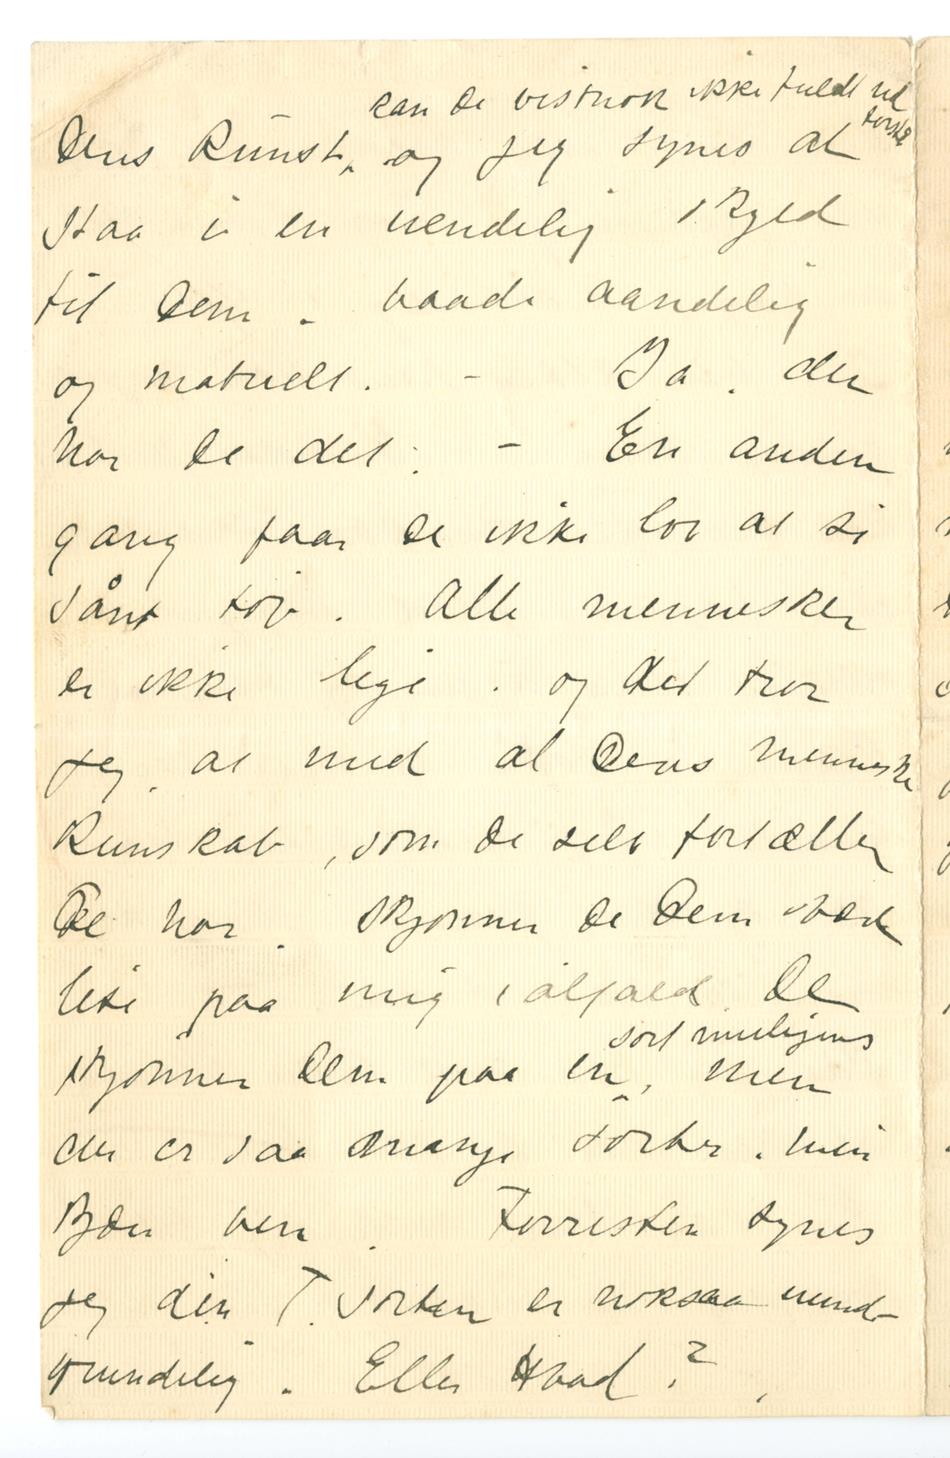 kan De vistnok ikke fuldt ud
forstå
Deres Kunst, og jeg synes at
staa i en uendelig skyld
til Dem. baade aandelig
og matrielt. - Ja. der
har De det. - En anden
gang faar De ikke lov at si
sånt tøv. Alle mennesker
er ikke lige. og det tror
jeg at med al Deres menneske
kunskab, som De selv fortæller
De har. skjønner De Dem
paa mig ialfald De
skjønner Dem paa en, men
sort muligens
der er saa mange sorter. min
kjære ven. Forresten synes
jeg den sorten er noksaa uund-
grundelig. Eller Hvad?